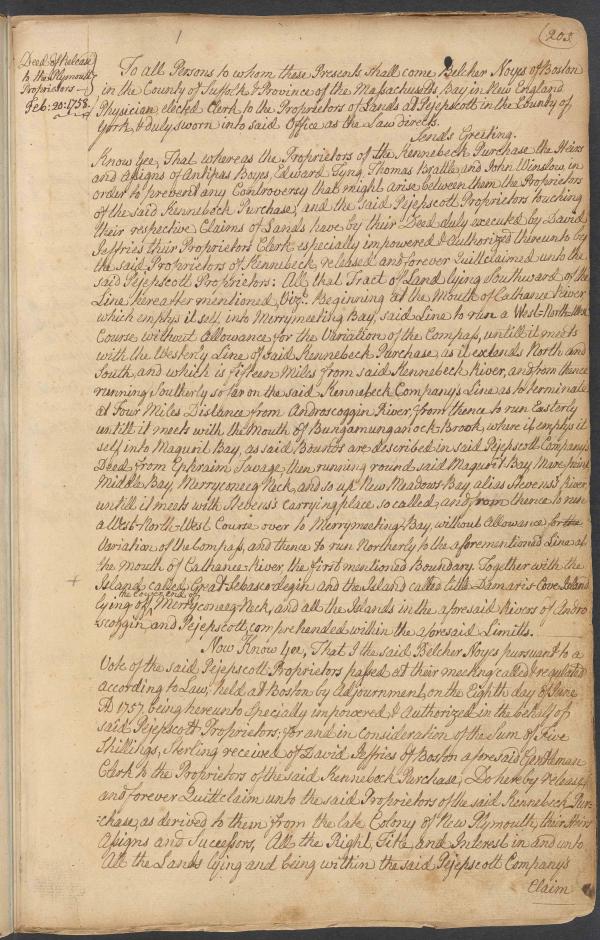 203
Deed of Release
to the Plymouth
Proprietors
Feb: 20: 1758.
To all Persons to whom these Presents shall come Belcher Noyes of Boston
in the County of Suffolk & Province of the Massachusetts Bay in New England
Physician, elected Clerk to the Proprietors of Lands at Pejepscott in the County of
York, & duly sworn into said Office as the Law directs.
Sends Greeting.
Know Yee, That whereas the Proprietors of the Kennebeck Purchase the Heirs
and Assigns of Antipas Boyes, Edward Tyng, Thomas Brattle and John Winslow, in
order to prevent any Controversy that might arise between them the Proprietors
of the said Kennebeck Purchase, and the said Pejepscott Proprietors touching
their respective Claims of Lands have by their Deed duly executed by David
Jeffries their Proprietors Clerk especially impowered & Authorized thereunto by
the said Proprietors of Kennebeck, released and forever Quitclaimed unto the
said Pejepscott Proprietors: All that Tract of Land lying Southward of the
Line hereafter mentioned, Vizt. Beginning at the Mouth of Cathance River
which emptys it self into Merrymeeting Bay, said Line to run a West-North-West
Course without allowance for the Variation of the Compass, untill it meets
with the Westerly Line of said Kennebeck Purchase, as it extends North and
South, and which is fifteen Miles from said Kennebeck River, and from thence
running Southerly so far on the said Kennebeck Company's Line as to terminate
at Four Miles Distance from Androscoggin River, from thence to run Easterly
untill it meets with the Mouth of Bungamunganock Brook, where it emptys it
self into Maquoit Bay, as said Bounds are described in said Pejepscott Company's
Deed from Ephraim Savage, then running round said Maquoit Bay, Mare point
Middle Bay, Merryconeeg Neck, and so up New Meadows Bay, alias Stevens's River
untill it meets with Stevens's Carrying place so called, and from thence to run
a West-North-West Course over to Merrymeeting Bay, without allowance for the
Variation of the Compass, and thence to run Northerly to the aforementioned Line at
the Mouth of Cathance River, the first mentioned Boundary. Together with the
+ Island called Great Sebascodegin and the Island called little Damaris Cove Island
the lower end of
lying off Merryconeeg Neck, and all the Islands in the aforesaid Rivers of Andro
-scoggin and Pejepscott, comprehended within the aforesaid Limitts.
Now Know Yee, That I the said Belcher Noyes pursuant to a
Vote of the said Pejepscott Proprietors passed at their meeting called & regulated
according to Law, held at Boston by Adjournment, on the Eighth day of June
AD 1757, being hereunto specially impowered & Authorized in the behalf of
said Pejepscott Proprietors, for and in consideration of the Sum of Five
Shillings, Sterling received of David Jeffries of Boston aforesaid Gentleman
Clerk to the Proprietors of the said Kennebeck Purchase, Do hereby release
and forever Quittclaim unto the said Proprietors of the said Kennebeck Pur-
-chase, as derived to them from the late Colony of New Plymouth, their Heirs
Assigns and Successors, All the Right, Title and Interest in and unto
All the Lands lying and being within the said Pejepscott Company's
Claim